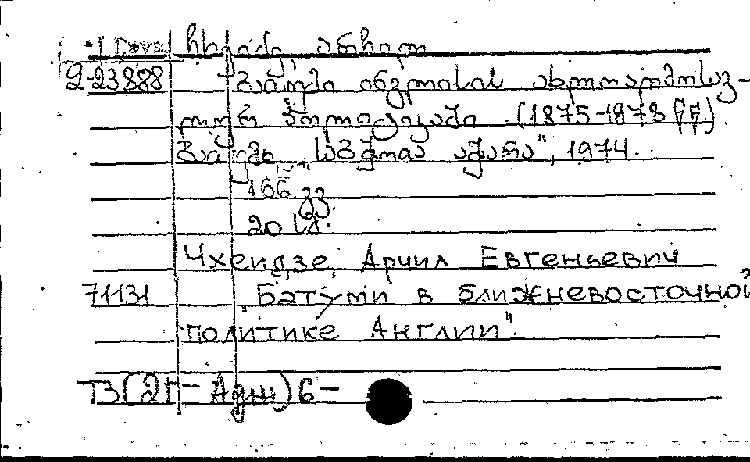 ჩხეიძე, არჩილ
2-23888 ბათუმი ინგლისის ახლოაღმოსავ-
ლურ პოლიტიკაში (1875-1878 წწ)
ბათუმი "საბჭოთა აჭარა", 1974.
166 გვ
20 კ.
Чхеидзе, Арчил Евгеньевич
71131 "Батуми в ближневосточной
политике Англии".
Т3(2Г-Адж)6-